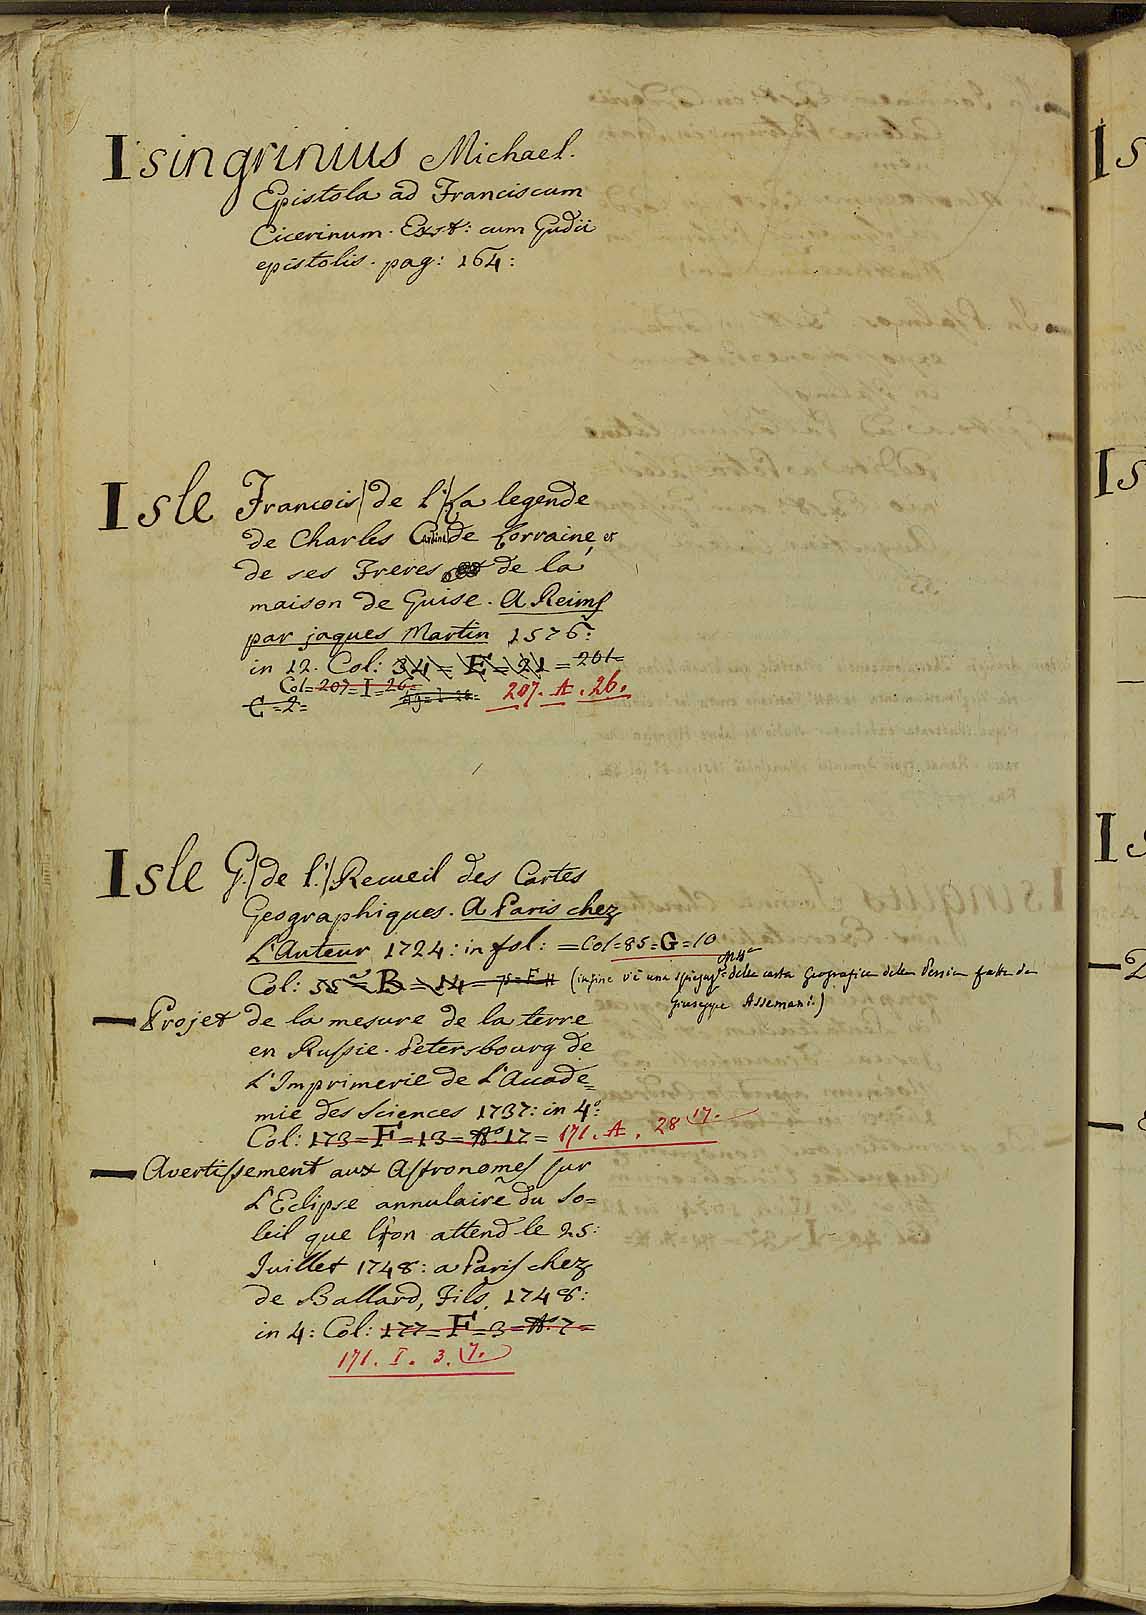 Isingrinius Michael.
Epistola ad Franciscum
Cicerinum. Exst: cum Gudii
epistolis. pag: 164:
Isle Francois/ de l'/ La legende
de Charles Cardinal de Lorraine, et
de ses Freres de la
maison de Guise. A Reims
par jaques Martin 1576:
in 12. Col: 34 = E = 21 = 201=
Col= 207= I = 26=
C = 2=
207. A. 26.
Isle G./ de l'/ Recueil des Cartes
Geographiques. A Paris chez
L'Auteur 1724: in fol: = Col=85=G=10
Col: 55 = B = 14 =
(infine v'è una della carta Geografica della Persia fatta da
Giuseppe Assemani.)
— Projet de la mesure de la terre
en Russie. Petersbourg de
L'Imprimerie de L'Acade=
mie des Sciences 1737: in 4º:
Col: 173 = F = 13 = Nº 17 = 171. A. 28 17.
— Avertissement aux Astronomes sur
L'Eclipse annulaire du So=
leil que l'on attend le 25:
Juillet 1748: a Paris chez
de Ballard, Fils, 1748:
in 4: Col: 177 = F = 3 = Nº 7 =
171. I. 3. 7.